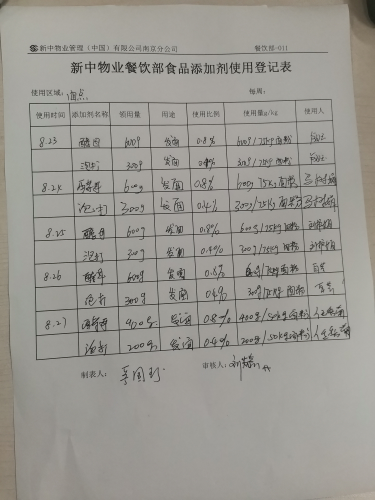 新中物业管理（中国）有限公司南京分公司 餐饮部-011
新中物业餐饮部食品添加剂使用登记表
使用区域： 面点 每周：
使用时间 添加剂名称 领用量 用途 使用比例 使用量g/kg 使用人
8.23 600g 发面 0.8% 600g/75kg面粉
泡打 300g 发面 300g/75kg面粉
8.24 酵母 600g 发面 0.8% 600g/75kg面粉
泡打 300g 发面 0.4% 300g/75kg面粉
8.25 酵母 600g 发面 0.8% 600g/75kg面粉
泡打 300g 发面 0.4% 300g/75kg面粉
8.26 酵母 600g 发面 0.8% /75kg面粉
泡打 300g 发面 0.4% 300g/75kg面粉
8.27 酵母 400g 发面 0.8% 400g/50kg面粉
泡打 200g 发面 0.4% 200g/50kg面粉
制表人： 审核人：